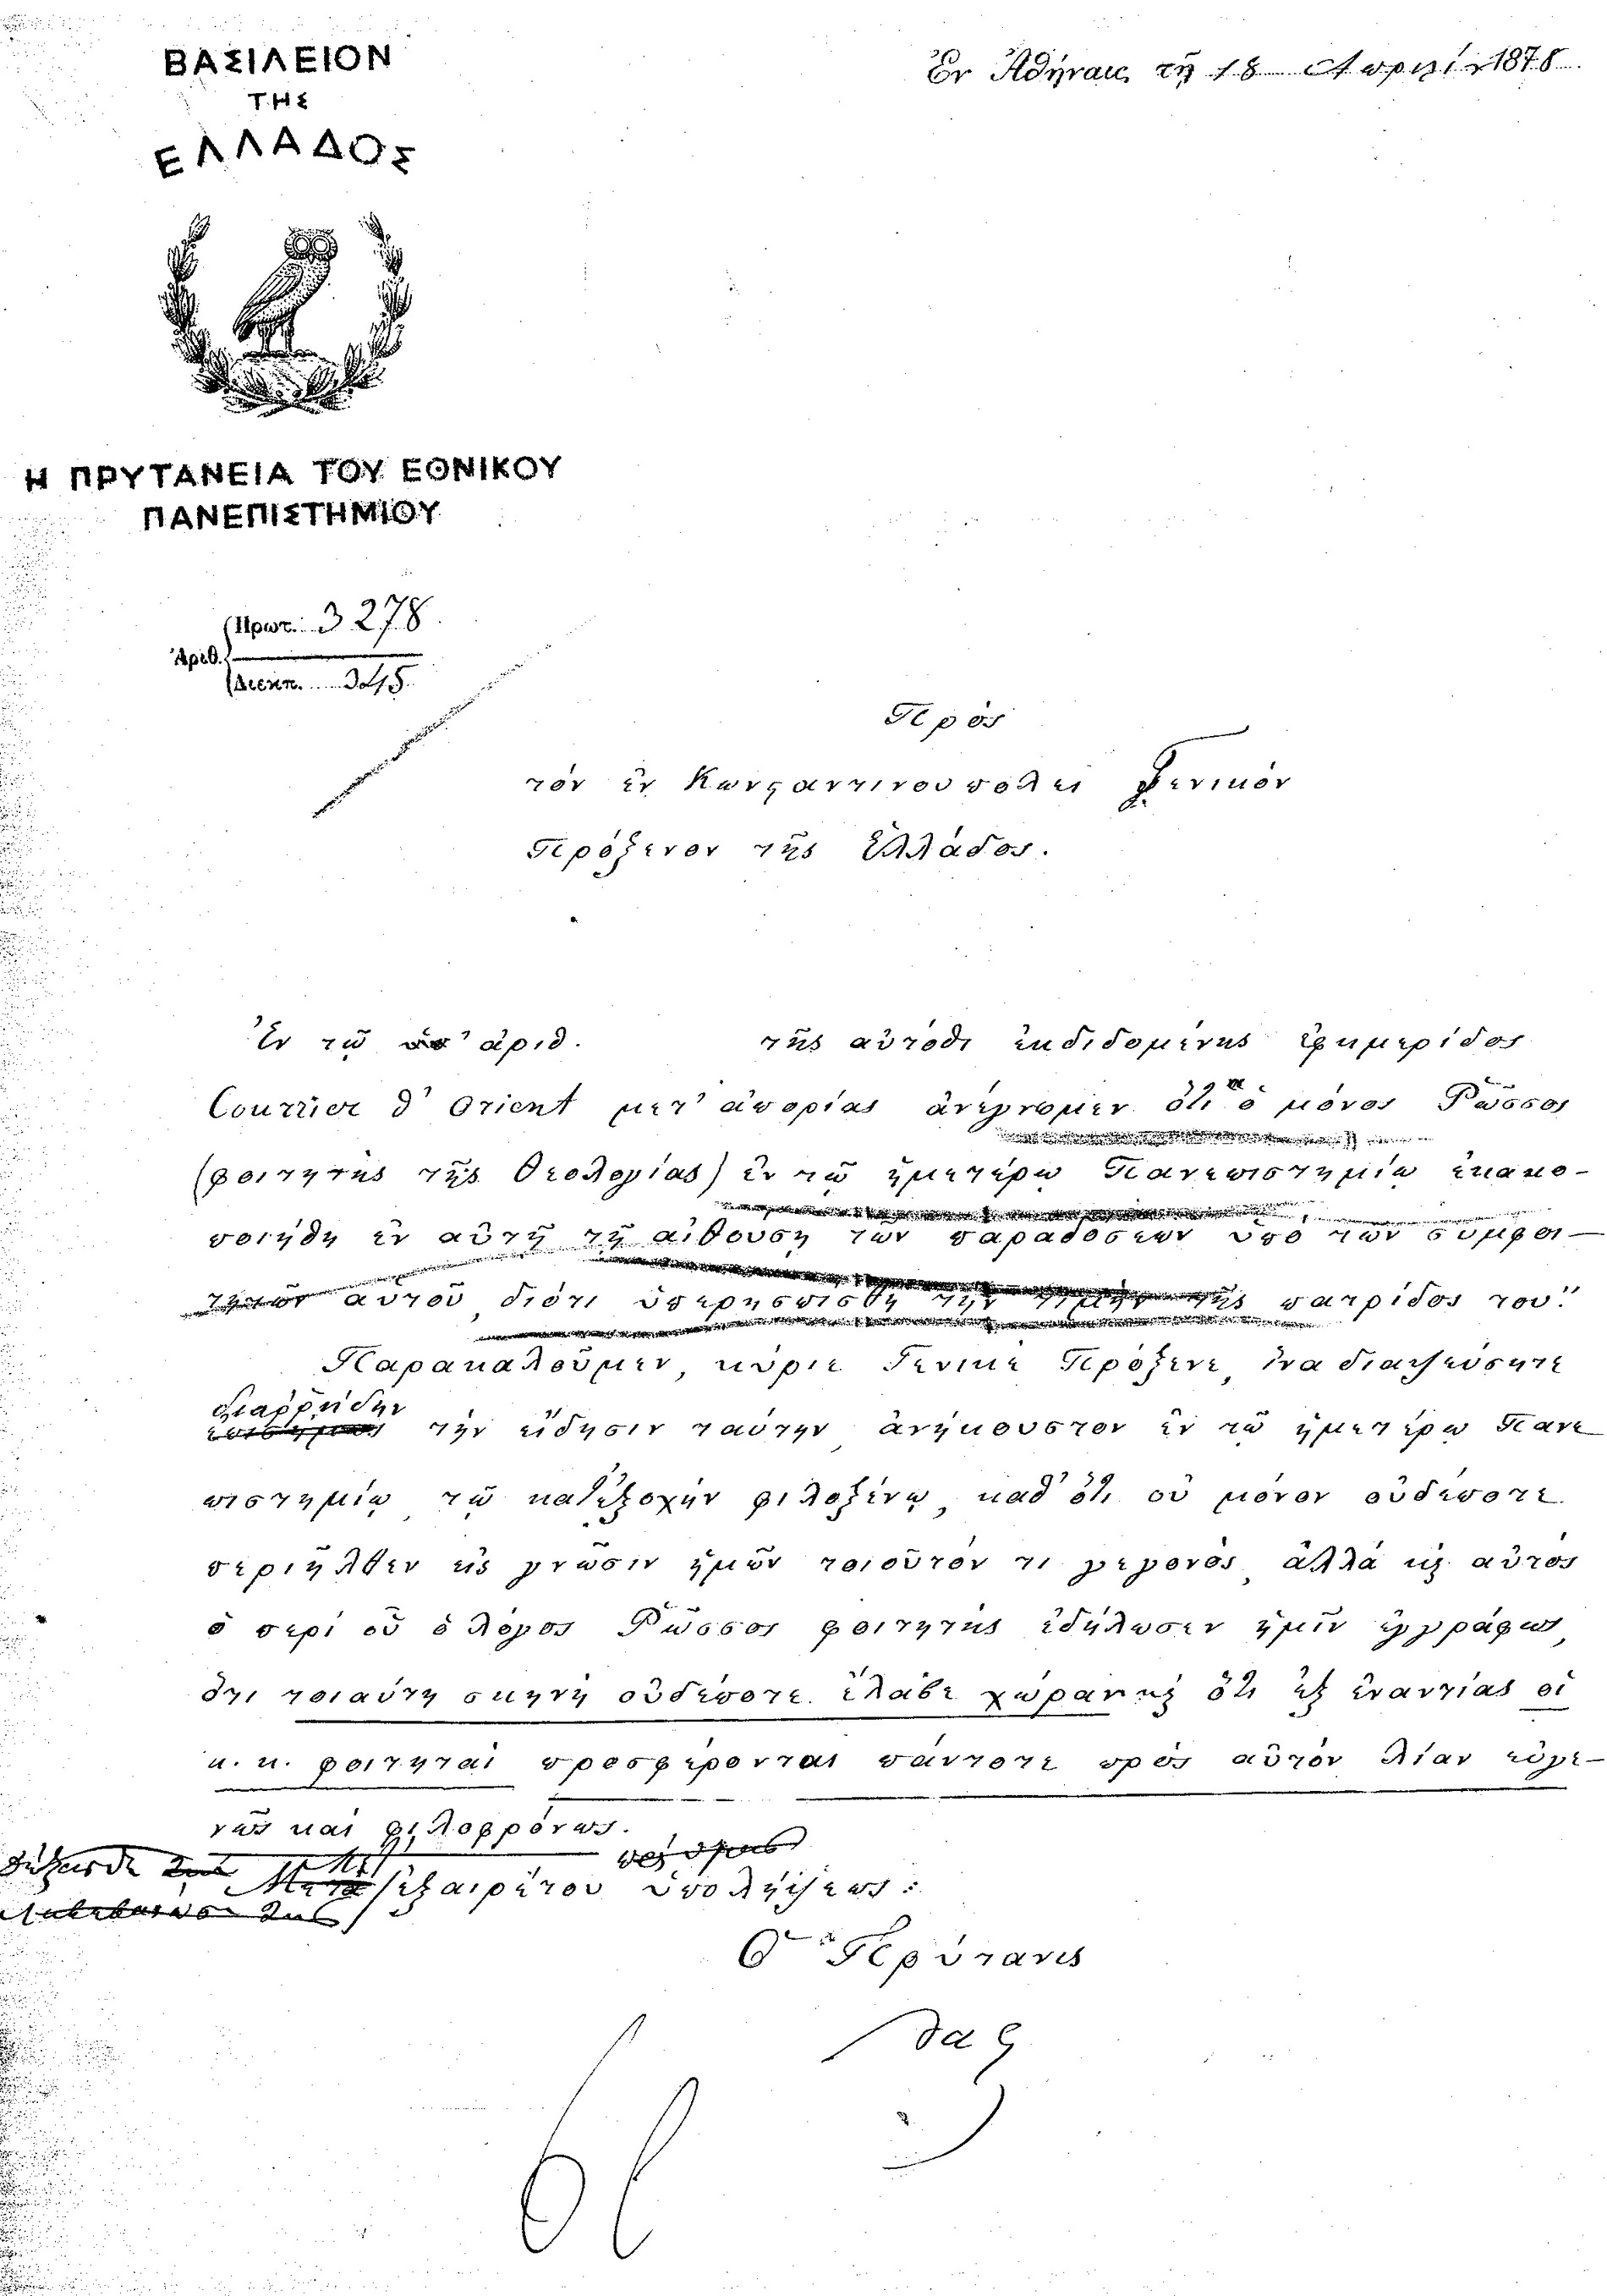 ΒΑΣΙΛΕΙΟΝ
ΤΗΣ
ΕΛΛΑΔΟΣ
Ἐν Ἀθήναις τῇ 18 Ἀπριλίου 1878
Η ΠΡΥΤΑΝΕΙΑ ΤΟΥ ΕΘΝΙΚΟΥ
ΠΑΝΕΠΙΣΤΗΜΙΟΥ
Πρωτ. 3278
Ἀριθ.
Διεκπ. 345
Πρὸς
τὸν ἐν Κωνσταντινουπόλει Γενικὸν
Πρόξενον τῆς Ἑλλάδος.
Ἐν τῷ ὑπ' ἀριθ. τῆς αὐτόθι ἐκδιδομένης ἐφημερίδος
Courrier d' Orient μετ' ἀπορίας ἀνέγνωμεν ὅτι "ὁ μόνος Ρῶσσος
(φοιτητὴς τῆς Θεολογίας) ἐν τῷ ἡμετέρῳ Πανεπιστημίῳ ἐκακο-
ποιήθη ἐν αὐτῇ τῇ αἰθούσῃ τῶν παραδόσεων ὑπὸ τῶν συμφοι-
τητῶν αὐτοῦ, διότι ὑπερησπίσθη τὴν τιμὴν τῆς πατρίδος του".
Παρακαλοῦμεν, κύριε Γενικὲ Πρόξενε, ἵνα διαψεύσητε
διαῤῥήδην
ἐπισήμως τὴν εἴδησιν ταύτην, ἀνήκουστον ἐν τῷ ἡμετέρῳ Πανε
πιστημίῳ, τῷ κατ' ἐξοχὴν φιλοξένῳ, καθ' ὅτι οὐ μόνον οὐδέποτε
περιῆλθεν εἰς γνῶσιν ἡμῶν τοιοῦτόν τι γεγονός, ἀλλὰ καὶ αὐτὸς
ὁ περὶ οὗ ὁ λόγος Ρῶσσος φοιτητὴς ἐδήλωσεν ἡμῖν ἐγγράφως,
ὅτι τοιαύτη σκηνὴ οὐδέποτε ἔλαβε χώραν καὶ ὅτι ἐξ ἐναντίας οἱ
κ. κ. φοιτηταὶ προσφέρονται πάντοτε πρὸς αὐτὸν λίαν εὐγε-
νῶς καὶ φιλοφρόνως.
Μετ' ἐξαιρέτου ὑπολήψεως:
Ὁ Πρύτανις